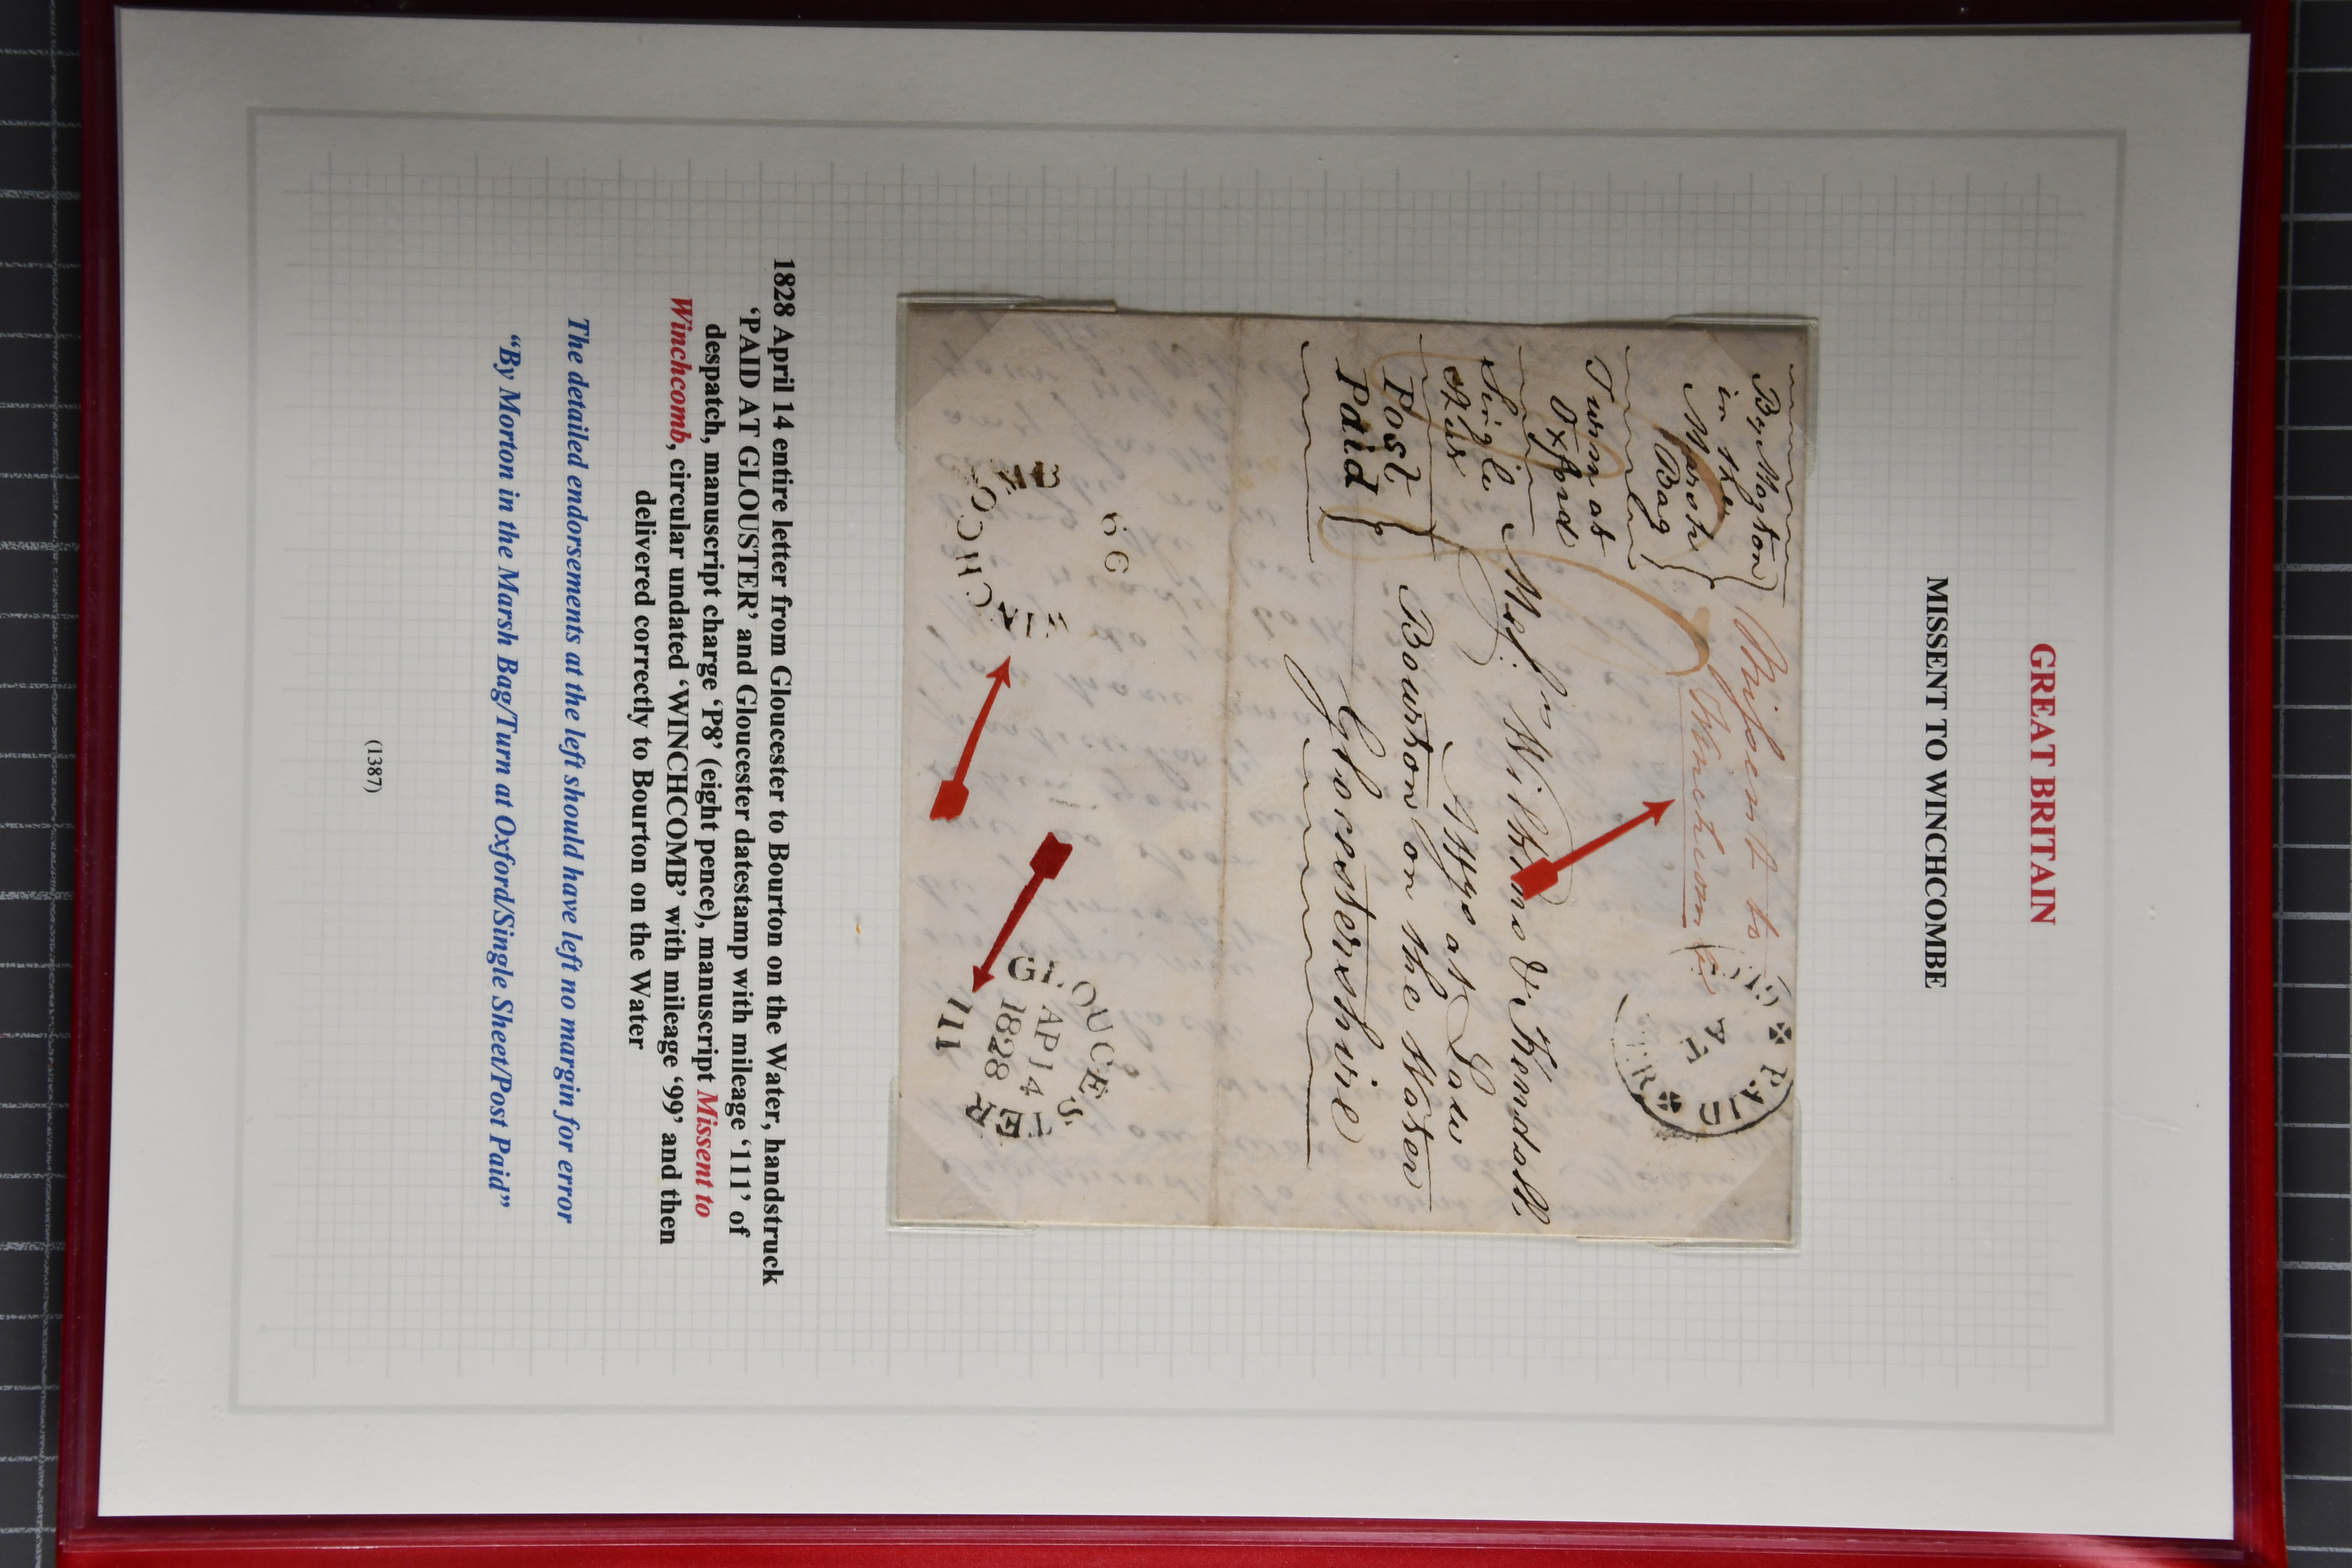 GREAT BRITAIN
MISSENT TO WINCHCOMBE
By Morton
in the
Marsh
Bag
Turn at
Oxford
Single
Post
Paid
Missent to
PAID
Messrs Wilkins & Kendall,
Attys at Law
Bourton on the Water
Glocestershire
99
GLOUCESTER
AP 14
1828
111
1828 April 14 entire letter from Gloucester to Bourton on the Water, handstruck
‘PAID AT GLOUSTER’ and Gloucester datestamp with mileage ‘111’ of
despatch, manuscript charge ‘P8’ (eight pence), manuscript Missent to
Winchcomb, circular undated ‘WINCHCOMB’ with mileage ‘99’ and then
delivered correctly to Bourton on the Water
The detailed endorsements at the left should have left no margin for error
“By Morton in the Marsh Bag/Turn at Oxford/Single Sheet/Post Paid”
(1387)